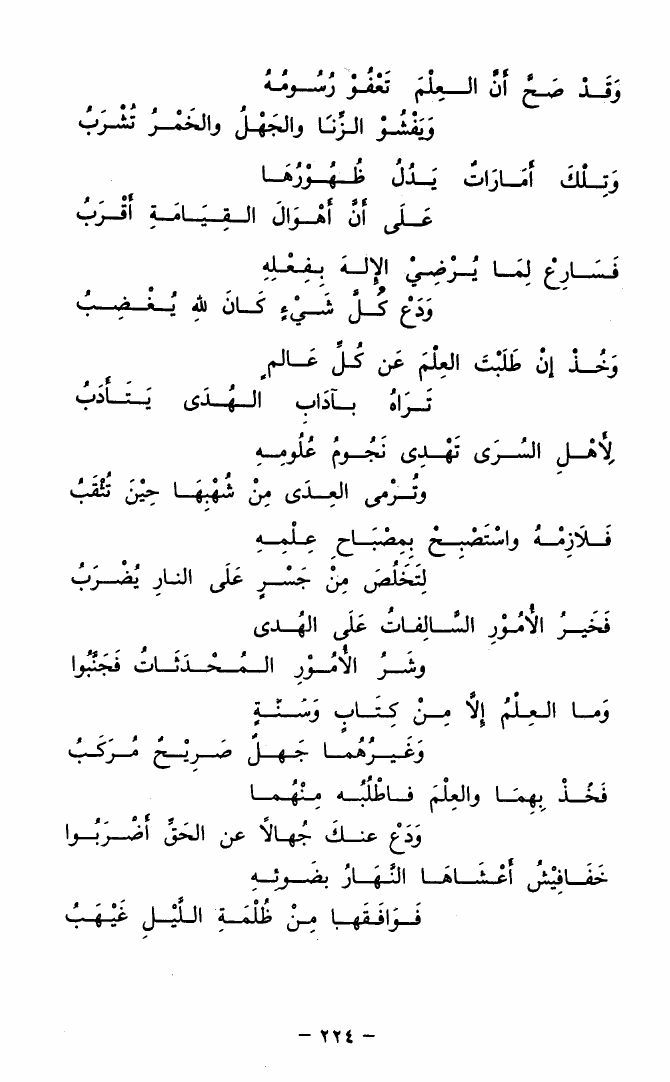 وَقَدْ صَحَّ أَنَّ العِلْمَ تَعْفُوْ رُسُومُهُ
وَيَفْشُوْ الزِّنَا والجَهْلُ والخَمْرُ تُشْرَبُ
وَتِلْكَ أَمَارَاتٌ يَدُلُ ظُهُوْرُهَا
عَلَى أَنَّ أَهْوَالَ القِيَامَةِ أَقْرَبُ
فَسَارِعْ لِمَا يُرْضِيْ الإِلهَ بِفِعْلِهِ
وَدَعْ كُلَّ شَيْءٍ كَانَ للهِ يُغْضِبُ
وَخُذْ إِنْ طَلَبْتَ العِلْمَ عَن كُلِّ عَالمٍ
تَرَاهُ بآدَابِ الهُدَى يَتَأَدَبُ
لِأَهْلِ السُرَى تَهْدِى نَجُومُ عُلُومِهِ
وتُرْمى العِدَى مِنْ شُهْبِهَا حِيْنَ تَثْقَبُ
فَلَازِمْهُ واسْتَصْبِحْ بِمِصْبَاحِ عِلْمِهِ
لِتَخْلُصَ مِنْ جَسْرٍ عَلَى النارِ يُضْرَبُ
فَخَيرُ الأُمُوْرِ السَّالِفاتُ عَلَى الهُدى
وشَرُ الأُمُوْرِ المُحْدَثَاتُ فَجَنِّبُوا
وَما العِلْمُ إِلَّا مِنْ كِتَابٍ وَسُنّةٍ
وَغَيرُهُمَا جَهلٌ صَرِيْحٌ مُرَكَبُ
فَخُذْ بِهِمَا والعِلْمَ فاطْلُبْه مِنْهُما
وَدَعْ عنكَ جُهالاً عن الحَقِّ أَضْرَبُوا
خَفَافِيْشُ أَعْشَاهَا النَّهَارُ بضَوئِهِ
فَوَافَقَها مِنْ ظُلْمَةِ اللَّيْلِ غَيْهَبُ
– ٢٢٤ –